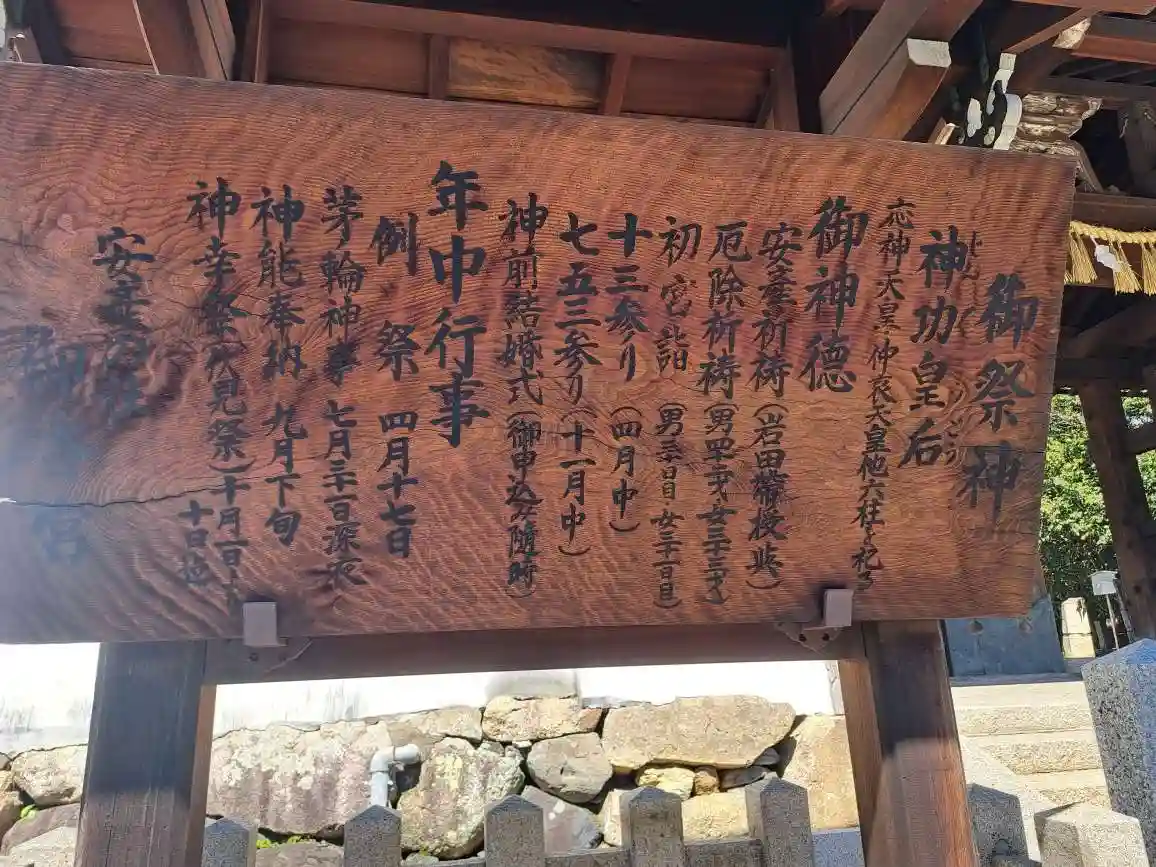 御祭神
神功皇后
じんぐうこうごう
応神天皇、仲哀天皇他六柱を祀る
御神徳
安産祈祷(岩田帯授与)
厄除祈祷(男四十二才女三十三才)
初宮詣(男三十日女三十一日目)
十三参り(四月中)
七五三参り(十一月中)
神前結婚式(御申込み随時)
年中行事
例祭 四月十七日
茅輪神事 七月三十一日深夜
神能奉納 九月下旬
神幸祭(伏見祭)十月一日ト
十日迄
安産の社
御香宮